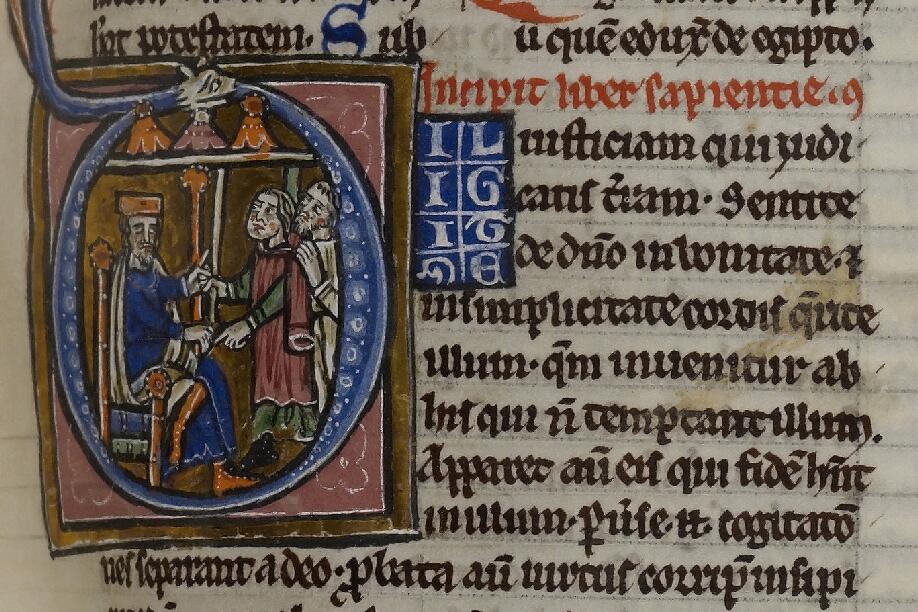 hic potestatem. Sub u quē eduxi de egipto.
Incipit liber sapientie.
IL iusticiam qui iudi
IG catis t̄ram. Sentite
IT de dn̄o in bonitate. &
DE in simplicitate cordis q̄rite
illum. qm̄ inuenitur ab
his qui n̄ temptant illum.
Apparet aū eis qui fidē hn̄t
in illum. p̄uerse .n̄. cogitatō
nes separant a deo. ꝓbata aū uirtus corrip̄ insipi